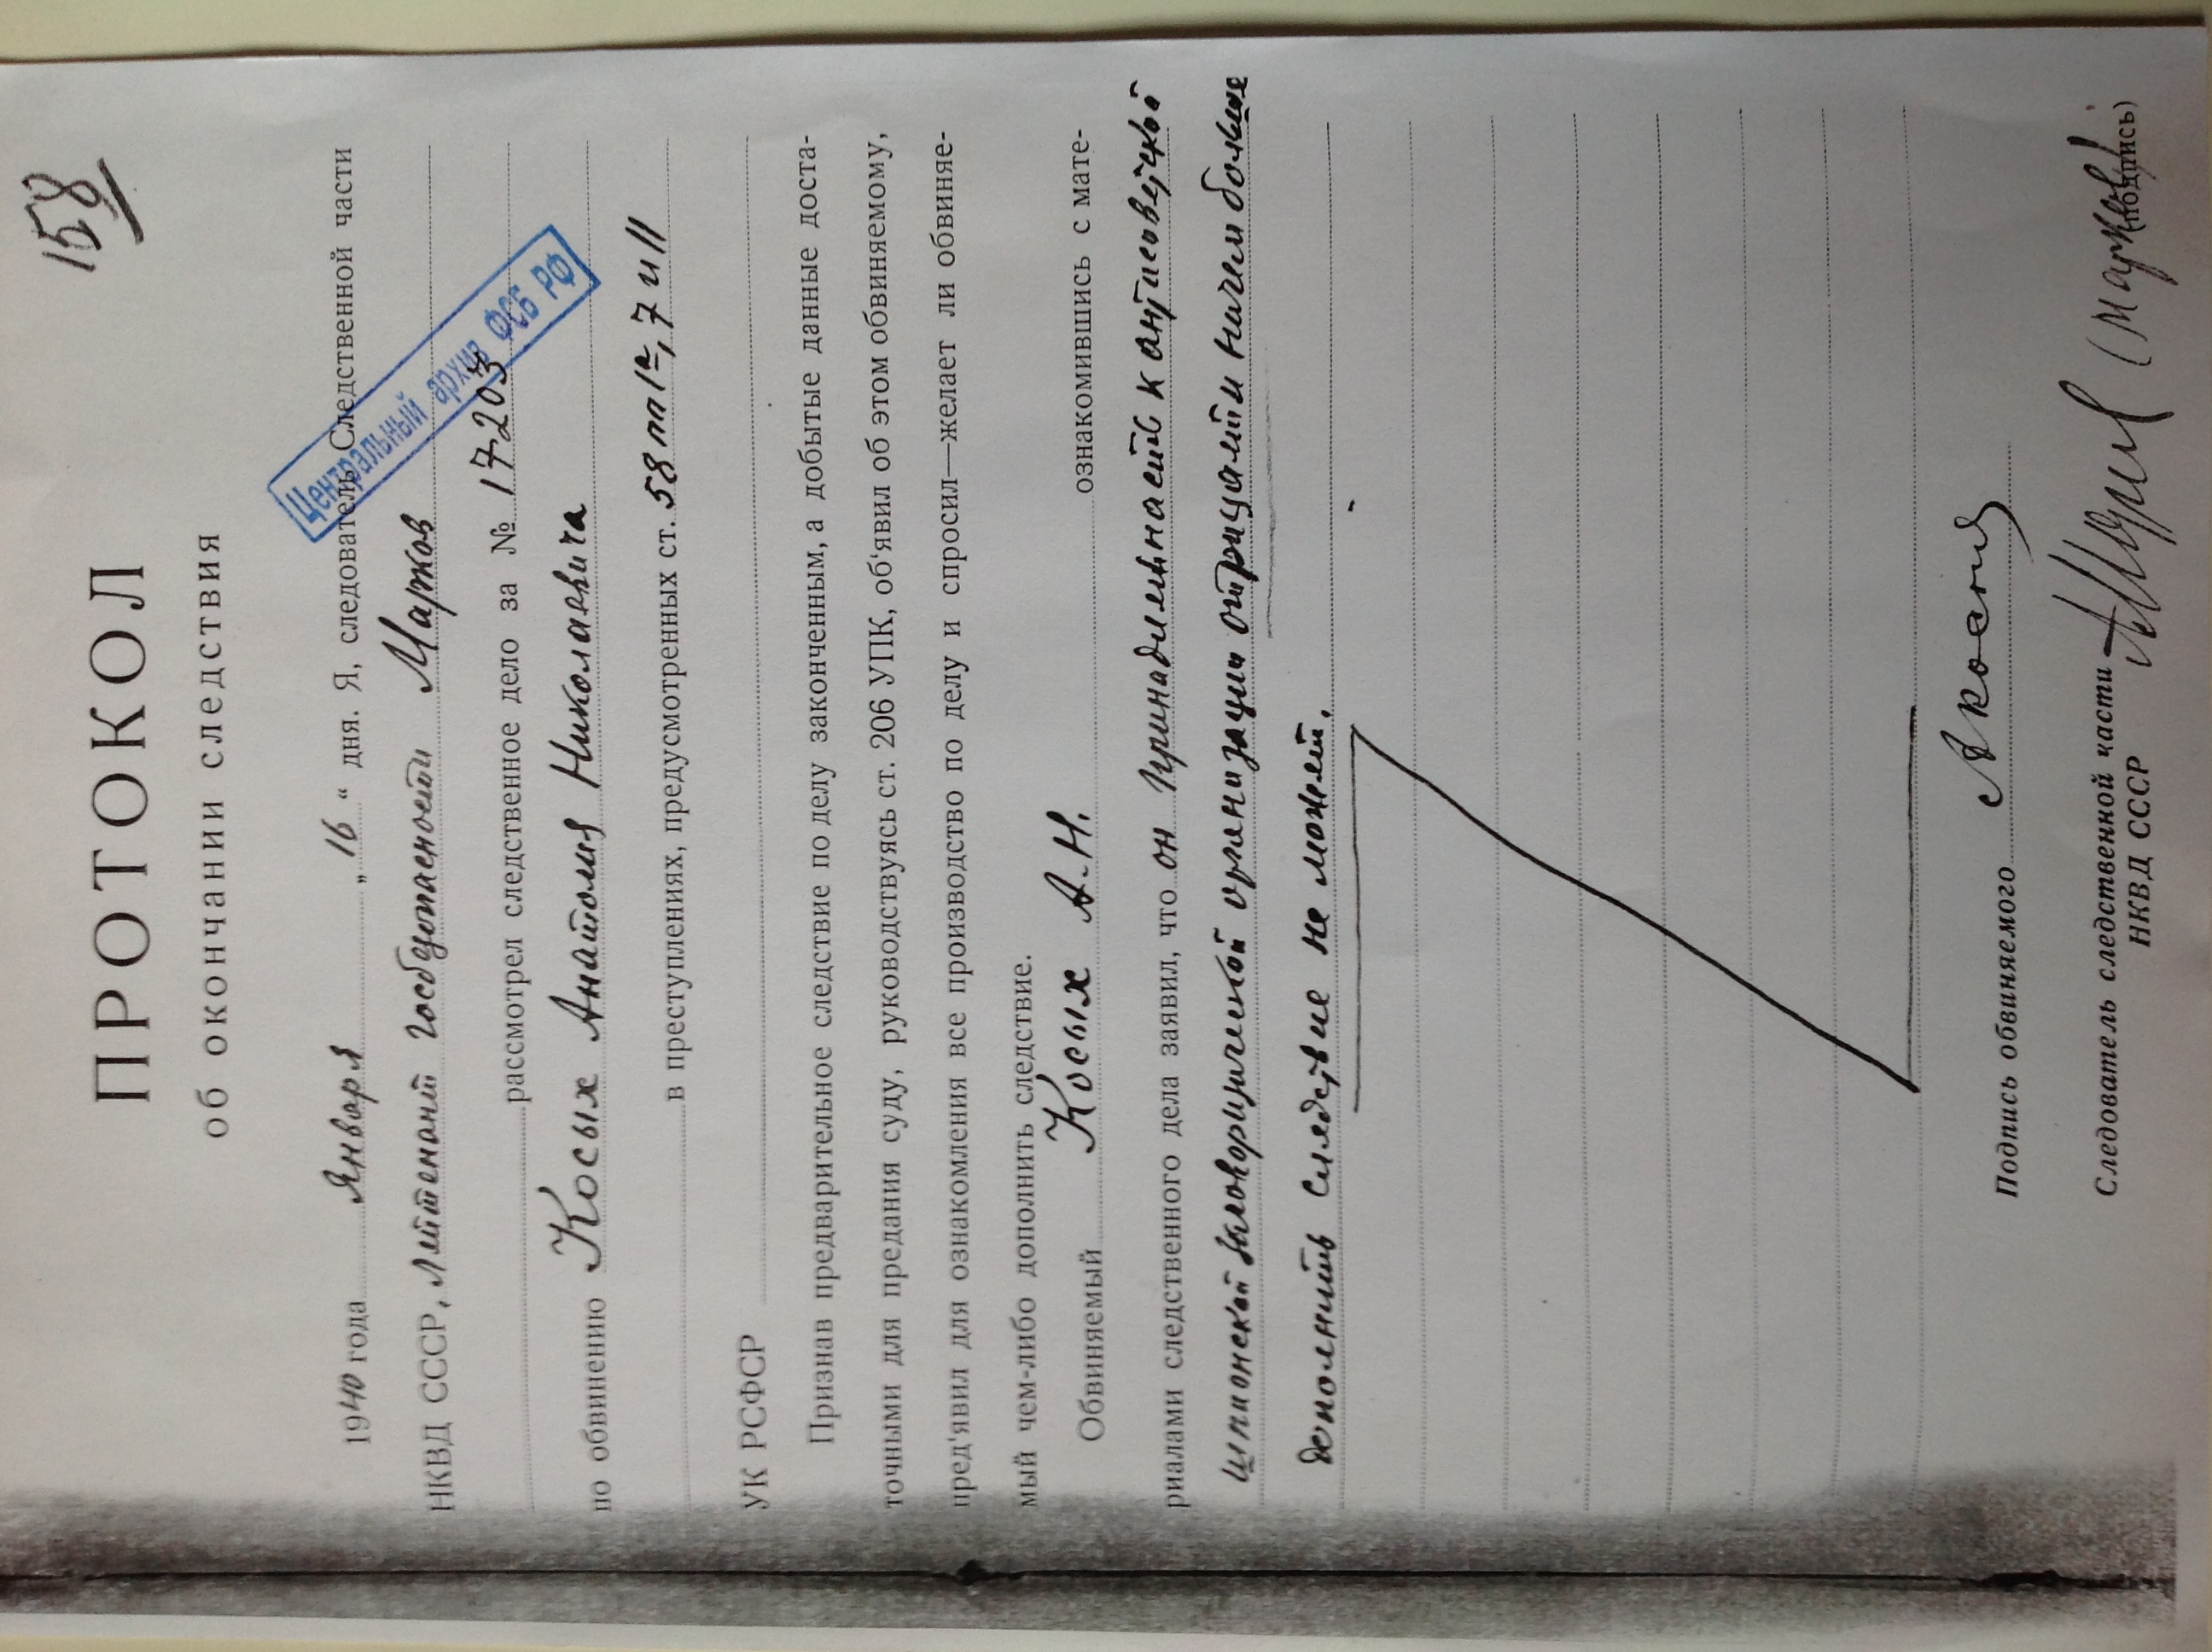 158
ПРОТОКОЛ
об окончании следствия
1940 года Января „16“ дня. Я, следователь Следственной части
Центральный архив ФСБ РФ
НКВД СССР, лейтенант госбезопасности Марков
рассмотрел следственное дело за № 17203
по обвинению Косых Анатолия Николаевича
в преступлениях, предусмотренных ст. 58 пп 1а, 7 и 11
УК РСФСР
Признав предварительное следствие по делу законченным, а добытые данные доста-
точными для предания суду, руководствуясь ст. 206 УПК, об'явил об этом обвиняемому,
пред'явил для ознакомления все производство по делу и спросил—желает ли обвиняе-
мый чем-либо дополнить следствие.
Обвиняемый Косых А.Н. ознакомившись с мате-
риалами следственного дела заявил, что он принадлежность к антисоветской
шпионской заговорщической организации отрицает и ничем больше
дополнить следствие не может.
Подпись обвиняемого
Следователь следственной части
НКВД СССР
(Марков)
(подпись)